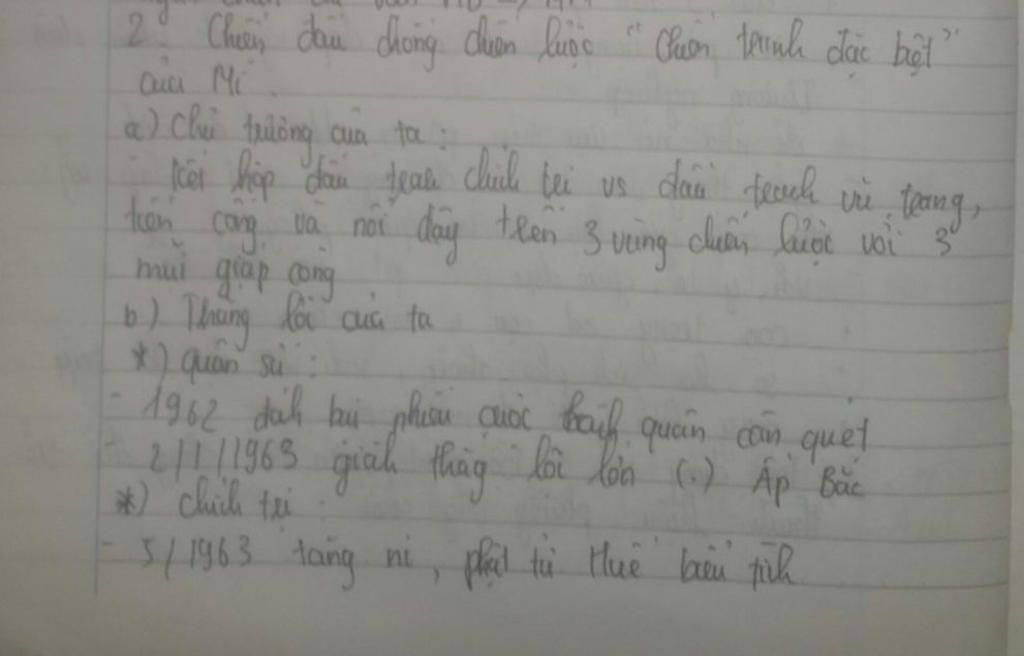 2. Chiến đấu chống chiến lược "Chiến tranh đặc biệt"
của Mĩ
a) Chủ trương của ta :
Kết hợp đấu tranh chính trị vs đấu tranh vũ trang,
tiến công và nổi dậy trên 3 vùng chiến lược với 3
mũi giáp công
b) Thắng lợi của ta
*) quân sự :
- 1962 đánh bại nhiều cuộc hành quân càn quét
- 2/1/1963 giành thắg lợi lớn (.) Ấp Bắc
*) chính trị :
- 5/1963 tăng ni, phật tử Huế biểu tình